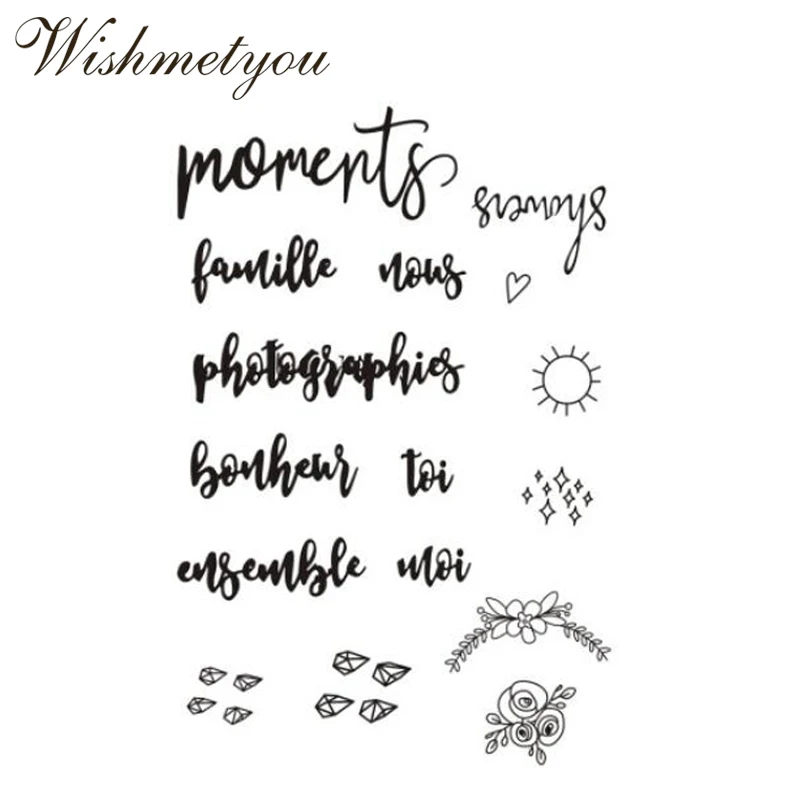 Wishmetyou
moments
famille nous
photographies
bonheur toi
ensemble moi